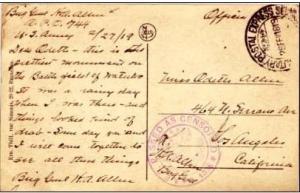 Brig Genl H.A. Allen
A.P.O. 744
U.S. Army 2/27/19
Dear Odette - this is the
prettiest monument on
the Battle field of Waterloo
It was a rainy day
when I was there - and
things looked kind of
drab - Some day you and
I will come together to
see all those things
Brig Genl H.A. Allen
Official
Miss Odette Allen
464 N.
Los Angeles
California
PASSED AS CENSORED
Brig Genl
MILITARY POSTAL EXPRESS SERVICE